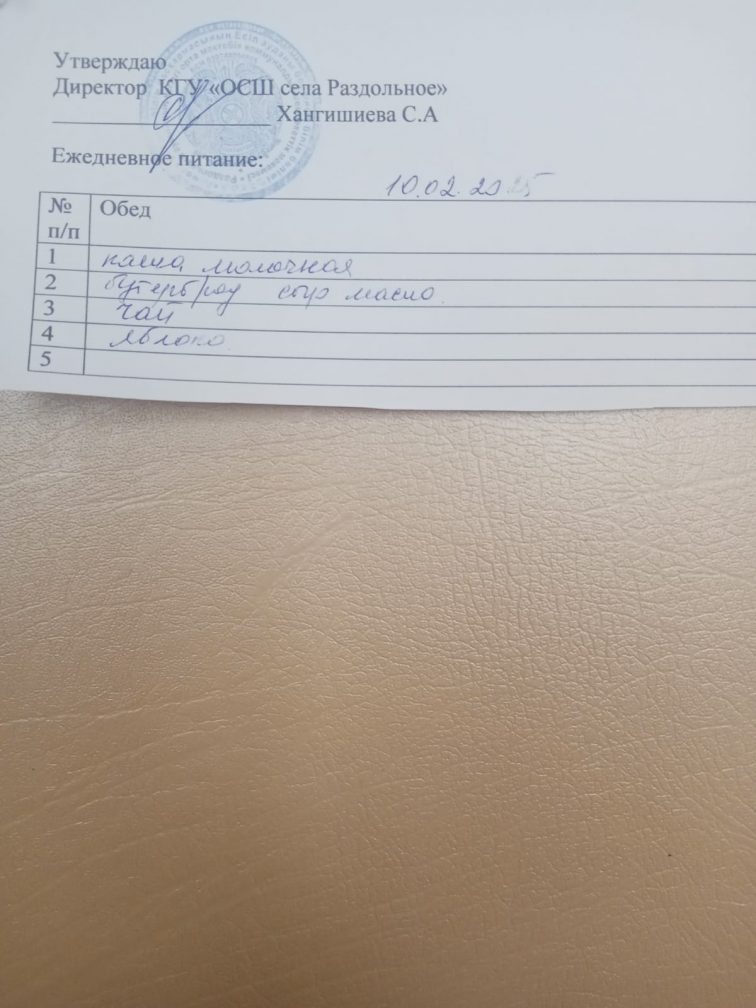 Утверждаю
Директор КГУ «ОСШ села Раздольное»
Хангишиева С.А
Ежедневное питание:
10.02.2025
№ п/п Обед
1 каша молочная
2 бутерброд сыр масло
3 чай
4 яблоко.
5